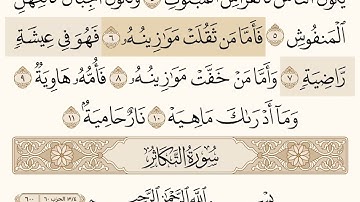 يَكُونُ ٱلنَّاسُ كَٱلْفَرَاشِ ٱلْمَبْثُوثِ ٤ وَتَكُونُ ٱلْجِبَالُ كَٱلْعِهْنِ
ٱلْمَنفُوشِ ٥ فَأَمَّا مَن ثَقُلَتْ مَوَٰزِينُهُۥ ٦ فَهُوَ فِى عِيشَةٍ
رَّاضِيَةٍ ٧ وَأَمَّا مَنْ خَفَّتْ مَوَٰزِينُهُۥ ٨ فَأُمُّهُۥ هَاوِيَةٌ ٩
وَمَآ أَدْرَىٰكَ مَا هِيَهْ ١٠ نَارٌ حَامِيَةٌۢ ١١
سُورَةُ التَّكَاثُرِ
بِسْمِ ٱللَّهِ ٱلرَّحْمَٰنِ ٱلرَّحِيمِ
٣/٤ الحزب ٦٠
٦٠٠